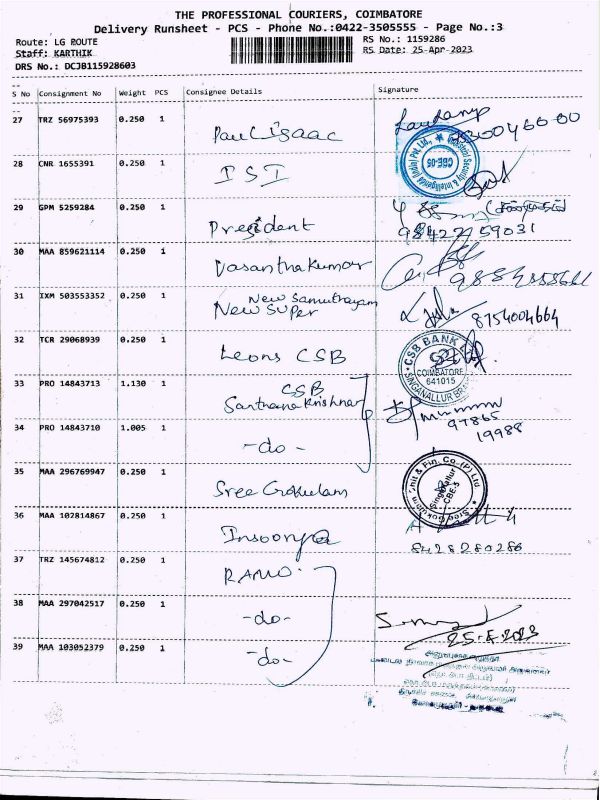 THE PROFESSIONAL COURIERS, COIMBATORE
Delivery Runsheet - PCS - Phone No.:0422-3505555 - Page No.:3
Route: LG ROUTE
RS No.: 1159286
Staff: KARTHIK
RS Date: 25-Apr-2023
DRS No.: DCJB115928603
S No Consignment No Weight PCS Consignee Details Signature
27 TRZ 56975393 0.250 1 Paul Isaac
28 CNR 1655391 0.250 1 ISI
CBE-05
29 GPM 5259284 0.250 1 President
30 MAA 859621114 0.250 1 Vasanthakumar
31 IXM 503553352 0.250 1 New Samuthrayam
New Super
8754004664
32 TCR 29068939 0.250 1 Leons CSB
CSB BANK
COIMBATORE
641015
33 PRO 14843713 1.130 1 CSB
Santhana Krishnan
97865
19988
34 PRO 14843710 1.005 1 -do-
35 MAA 296769947 0.250 1 Sree Gokulam
Singanallur
CBE-5
36 MAA 102814867 0.250 1
8428280286
37 TRZ 145674812 0.250 1
38 MAA 297042517 0.250 1 -do-
39 MAA 103052379 0.250 1 -do-